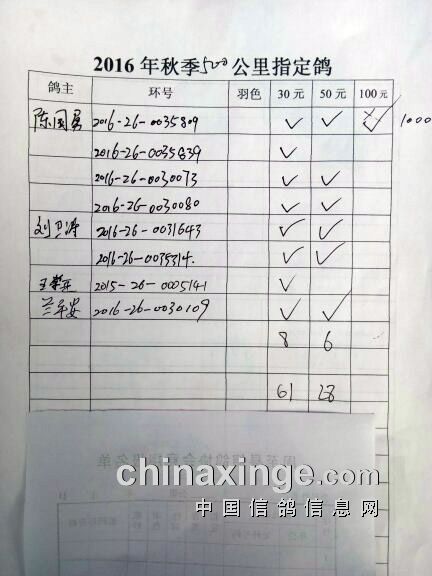 2016年秋季500公里指定鸽
鸽主 环号 羽色 30元 50元 100元
陈国勇 2016-26-0035809 ✓ ✓ ✓ 1000
2016-26-0035839 ✓
2016-26-0030073 ✓ ✓
2016-26-0030080 ✓ ✓
刘卫涛 2016-26-0031643 ✓ ✓
2016-26-0035314. ✓ ✓
2015-26-0005141 ✓
兰平安 2016-26-0030109 ✓ ✓
8 6
61 28
chinaxinge.com
中国信鸽信息网